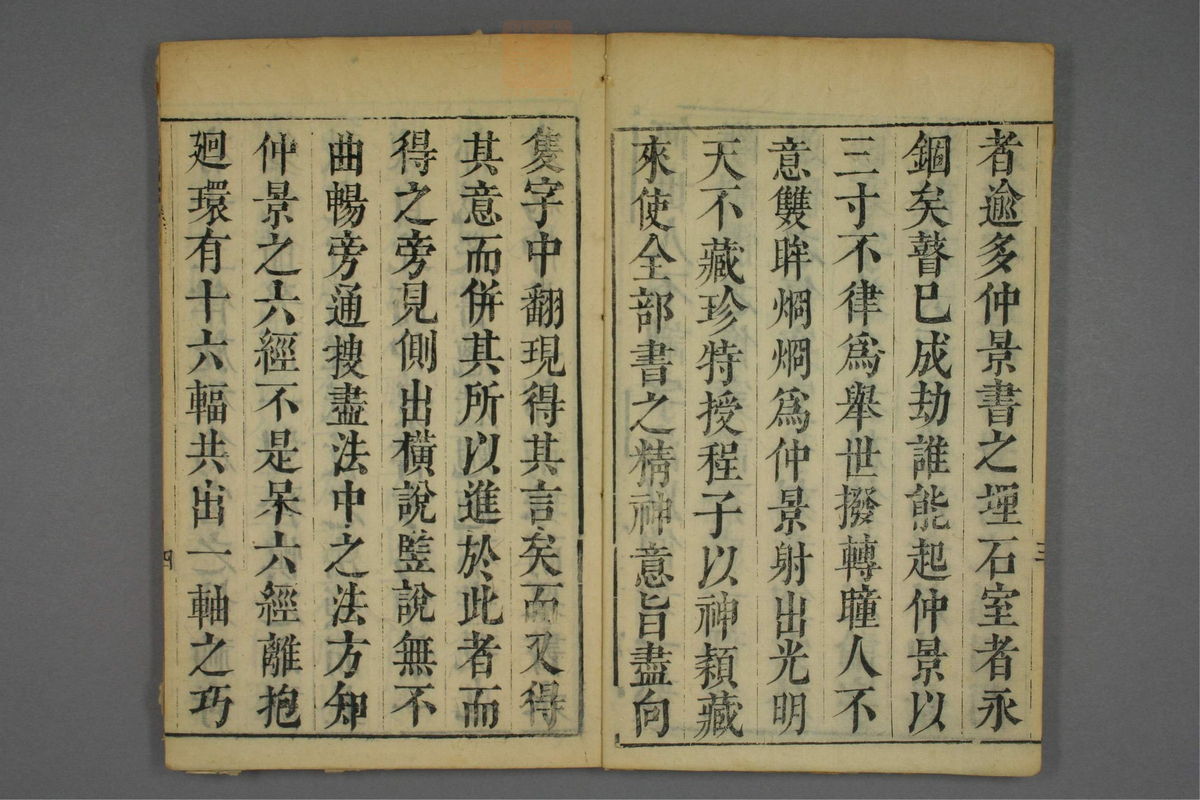 者逾多仲景書之堙石室者永
錮矣瞽已成劫誰能起仲景以
三寸不律爲舉世撥轉瞳人不
意雙眸烱烱爲仲景射出光明
天不藏珍特授程子以神穎藏
來使全部書之精神意旨盡向
三
隻字中翻現得其言矣而又得
其意而併其所以進於此者而
得之旁見側出橫說竪說無不
曲暢旁通搜盡法中之法方知
仲景之六經不是呆六經離抱
廻環有十六輻共出一軸之巧
四